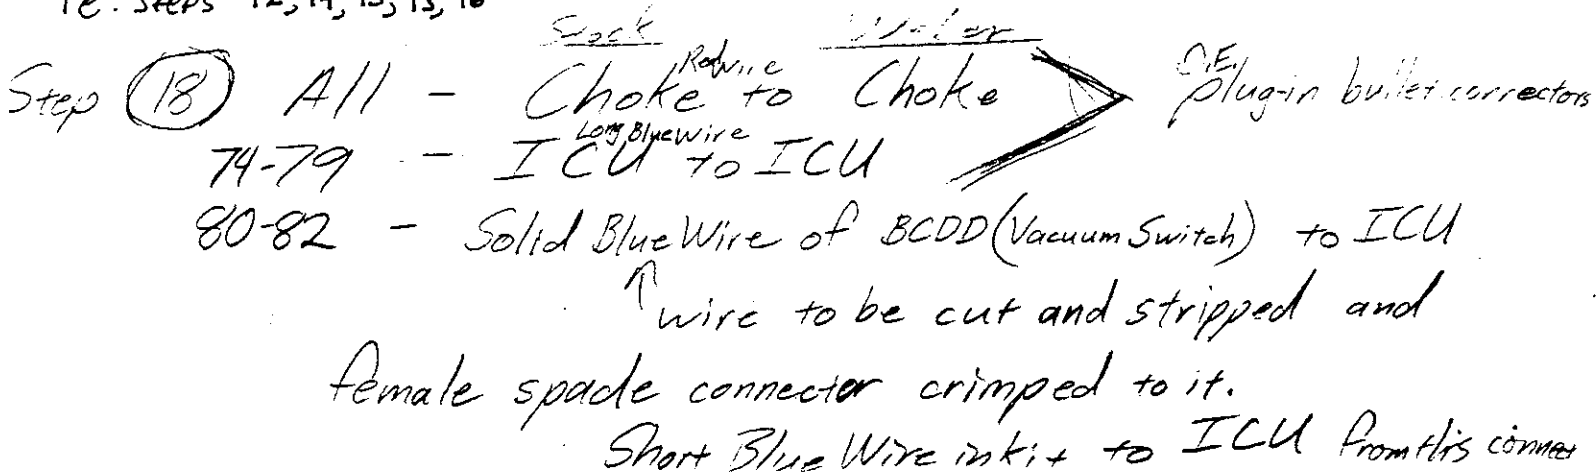 Stock Weber
Step 18 All - Choke Red Wire to Choke O.E. plug-in bullet connectors
74-79 - ICU Long Blue Wire to ICU
80-82 - Solid Blue Wire of BCDD (Vacuum Switch) to ICU
↑ wire to be cut and stripped and
female spade connector crimped to it.
Short Blue Wire in kit to ICU from this connec